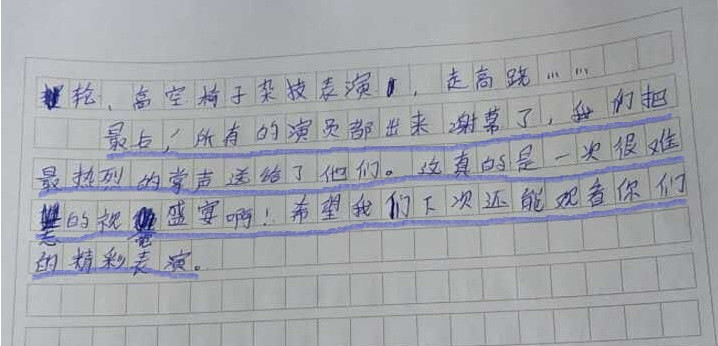 轮、高空椅子杂技表演，走高跷……
最后，所有的演员都出来谢幕了，我们把
最热烈的掌声送给了他们。这真的是一次很难
的视觉盛宴啊！希望我们下次还能观看你们
的精彩表演。